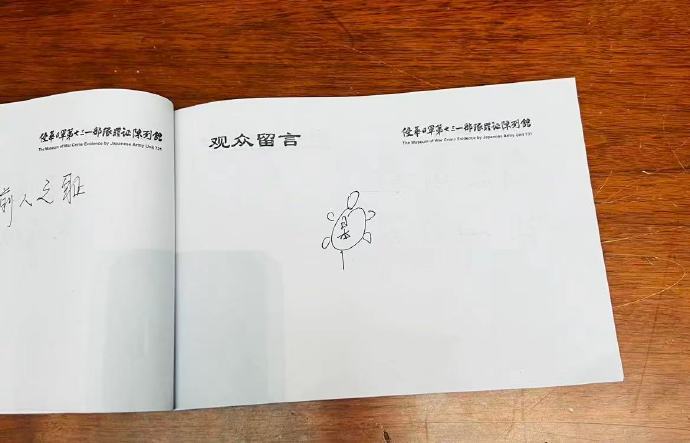 侵华日军第七三一部队罪证陈列馆
The Museum of War Crime Evidence by Japanese Army Unit 731
前人之耻
侵华日军第七三一部队罪证陈列馆
The Museum of War Crime Evidence by Japanese Army Unit 731
观众留言
日本